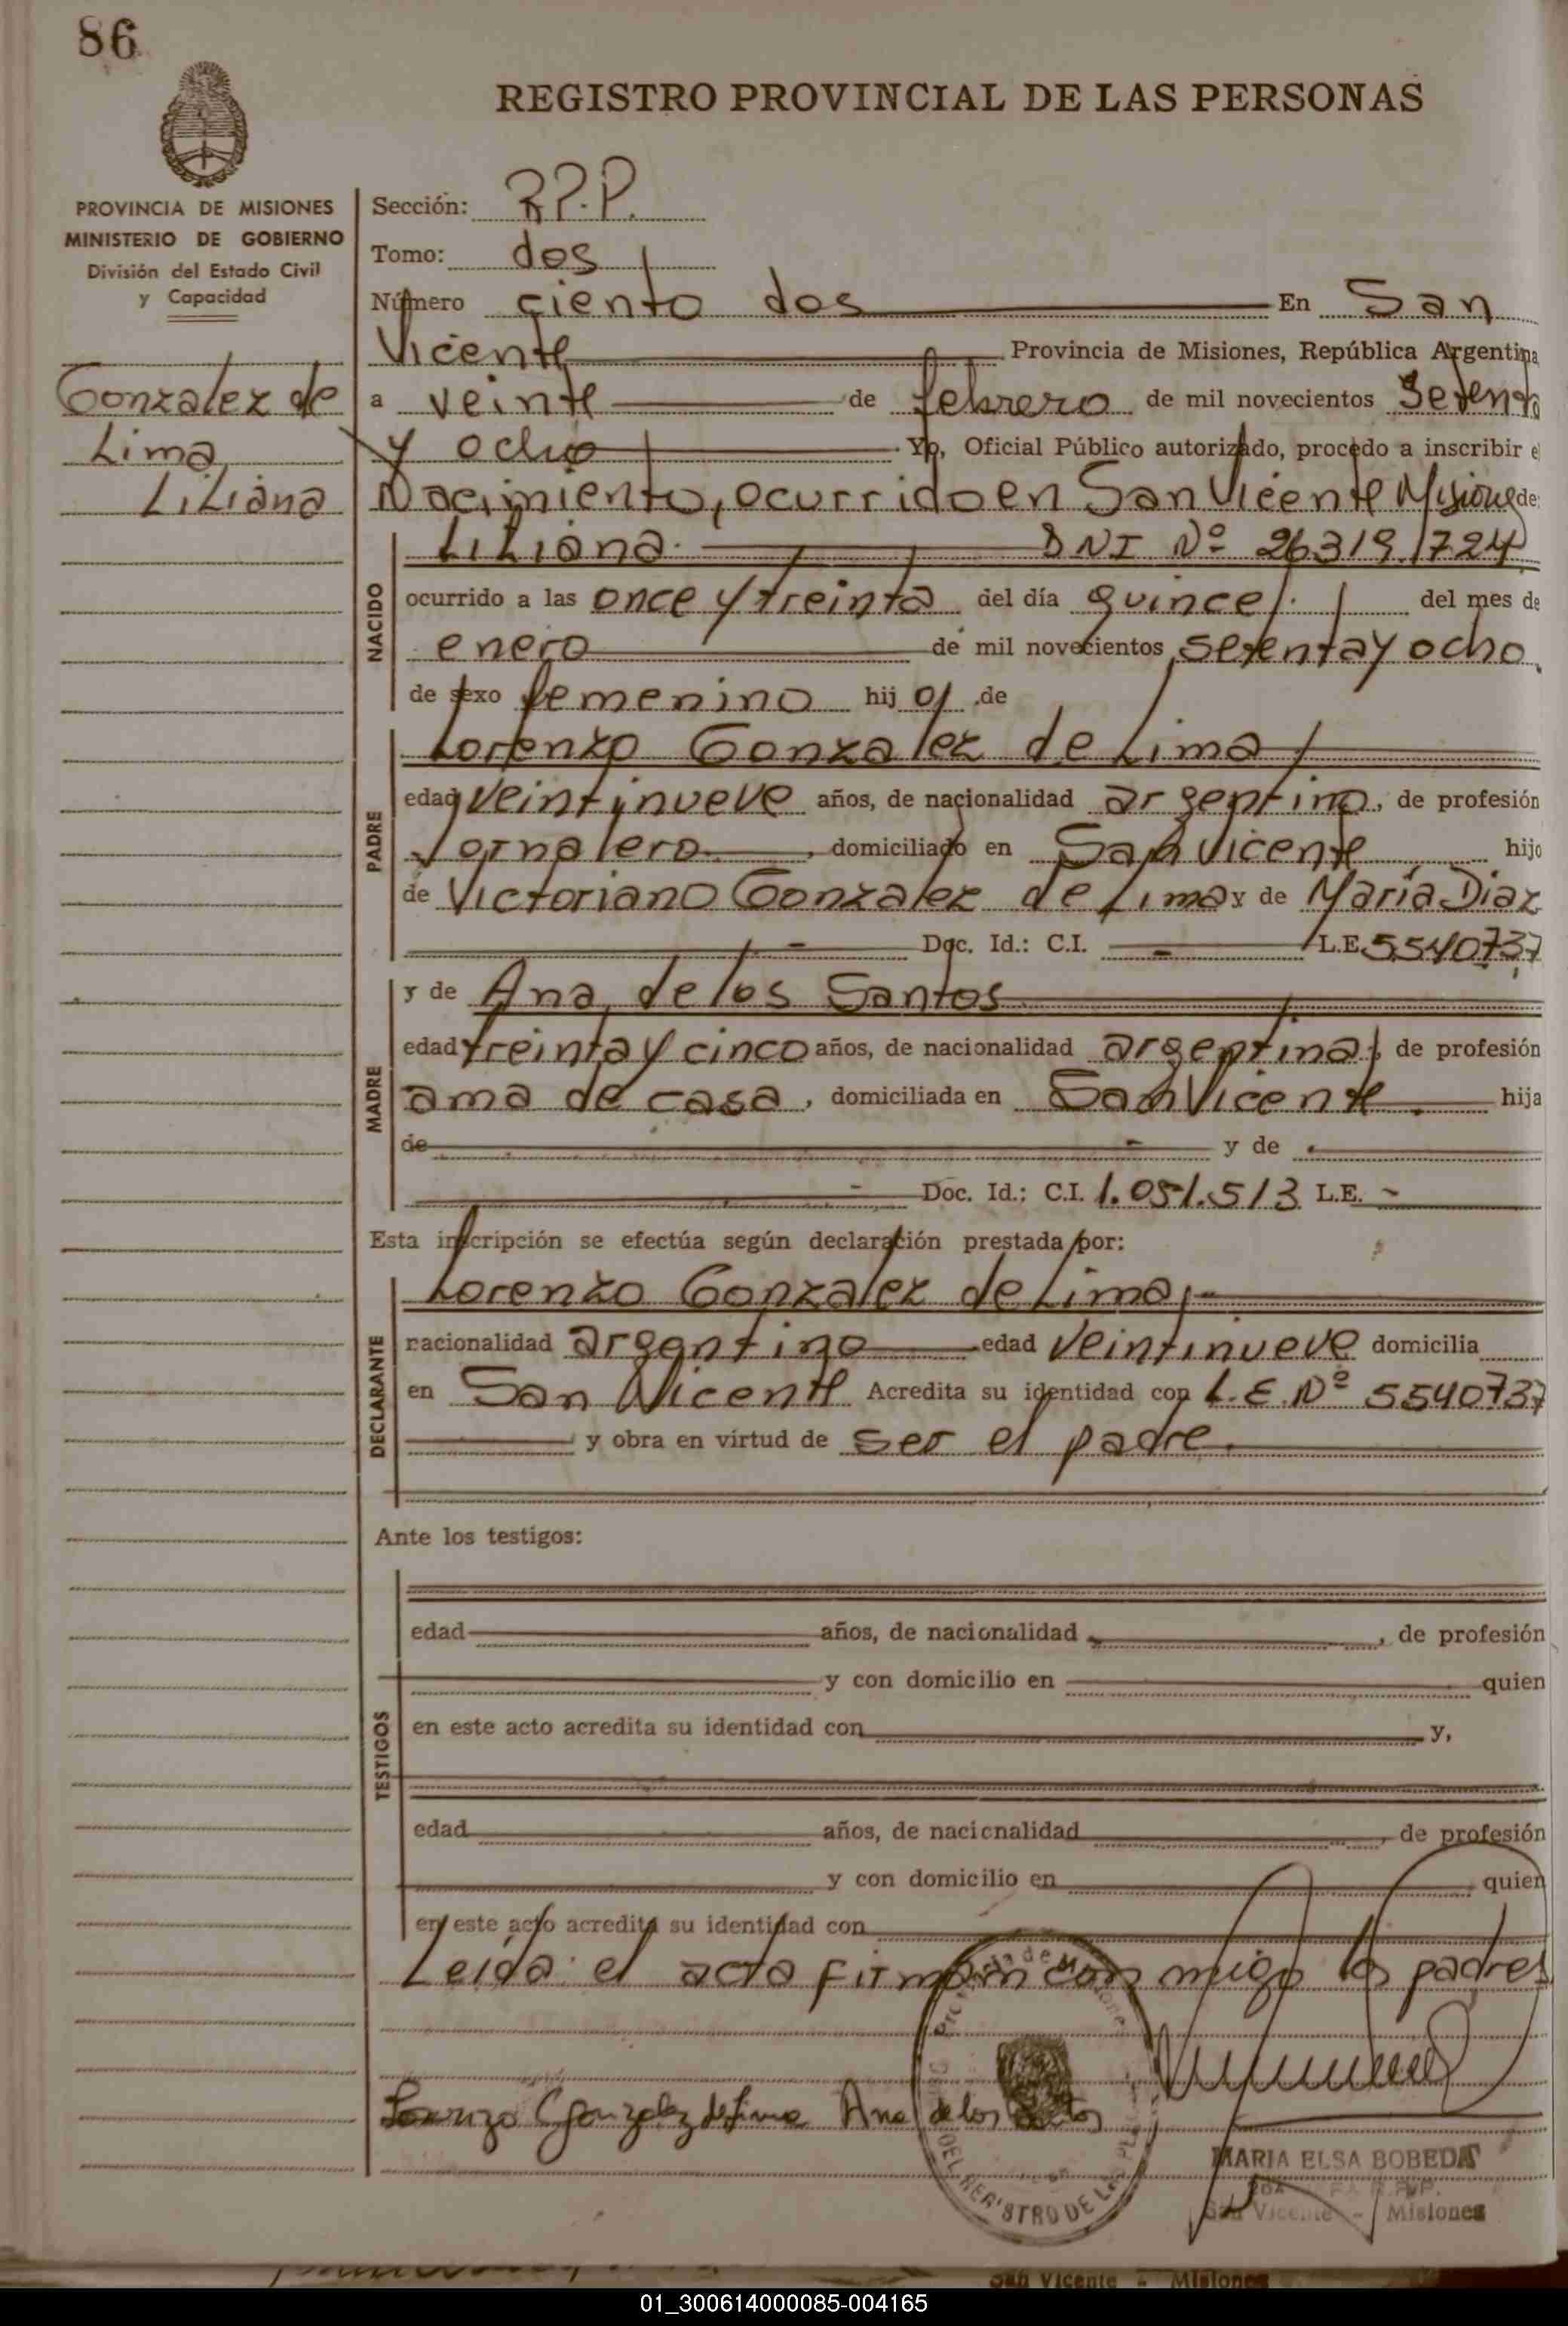 86
REGISTRO PROVINCIAL DE LAS PERSONAS
PROVINCIA DE MISIONES
MINISTERIO DE GOBIERNO
División del Estado Civil
y Capacidad
Gonzalez de
Lima
Liliana
Sección: R.P.P.
Tomo: dos
Número ciento dos En San
Vicente Provincia de Misiones, República Argentina
a veinte de febrero de mil novecientos setenta
y ocho Yo, Oficial Público autorizado, procedo a inscribir el
Nacimiento, ocurrido en San Vicente Misiones de:
NACIDO
Liliana. DNI Nº 26319724
ocurrido a las once y treinta del día quince del mes de
enero de mil novecientos setenta y ocho
de sexo femenino hij a de
PADRE
Lorenzo Gonzalez de Lima
edad veintinueve años, de nacionalidad argentino, de profesión
Jornalero, domiciliado en San Vicente hijo
de Victoriano Gonzalez de Lima y de María Diaz
Doc. Id.: C.I. - L.E. 5540737
MADRE
y de Ana de los Santos
edad treinta y cinco años, de nacionalidad argentina, de profesión
ama de casa, domiciliada en San Vicente hija
de - y de
- Doc. Id.: C.I. 1.051.513 L.E. -
Esta inscripción se efectúa según declaración prestada por:
DECLARANTE
Lorenzo Gonzalez de Lima,
nacionalidad argentino edad veintinueve domicilia
en San Vicente Acredita su identidad con L.E. Nº 5540737
y obra en virtud de ser el padre.
Ante los testigos:
TESTIGOS
edad años, de nacionalidad , de profesión
y con domicilio en quien
en este acto acredita su identidad con y,
edad años, de nacionalidad , de profesión
y con domicilio en quien
en este acto acredita su identidad con
Leida el acta firman con migo los padres
Lorenzo Gonzalez de Lima Ana de los Santos
Provincia de Misiones
DEL REGISTRO DE LAS
MARIA ELSA BOBEDA
R.P.P.
San Vicente - Misiones
San Vicente - Misiones
01_300614000085-004165